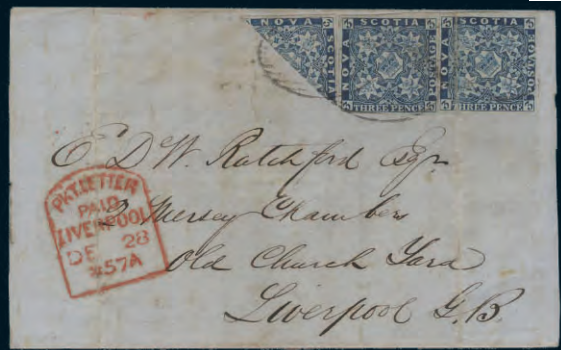 NOVA SCOTIA
NOVA SCOTIA POSTAGE THREE PENCE
NOVA SCOTIA POSTAGE THREE PENCE
E D W. Ratchford Esqr
2 Mersey Chambers
Old Church Yard
Liverpool G.B.
PKT.LETTER
PAID
LIVERPOOL
DE 28
57A